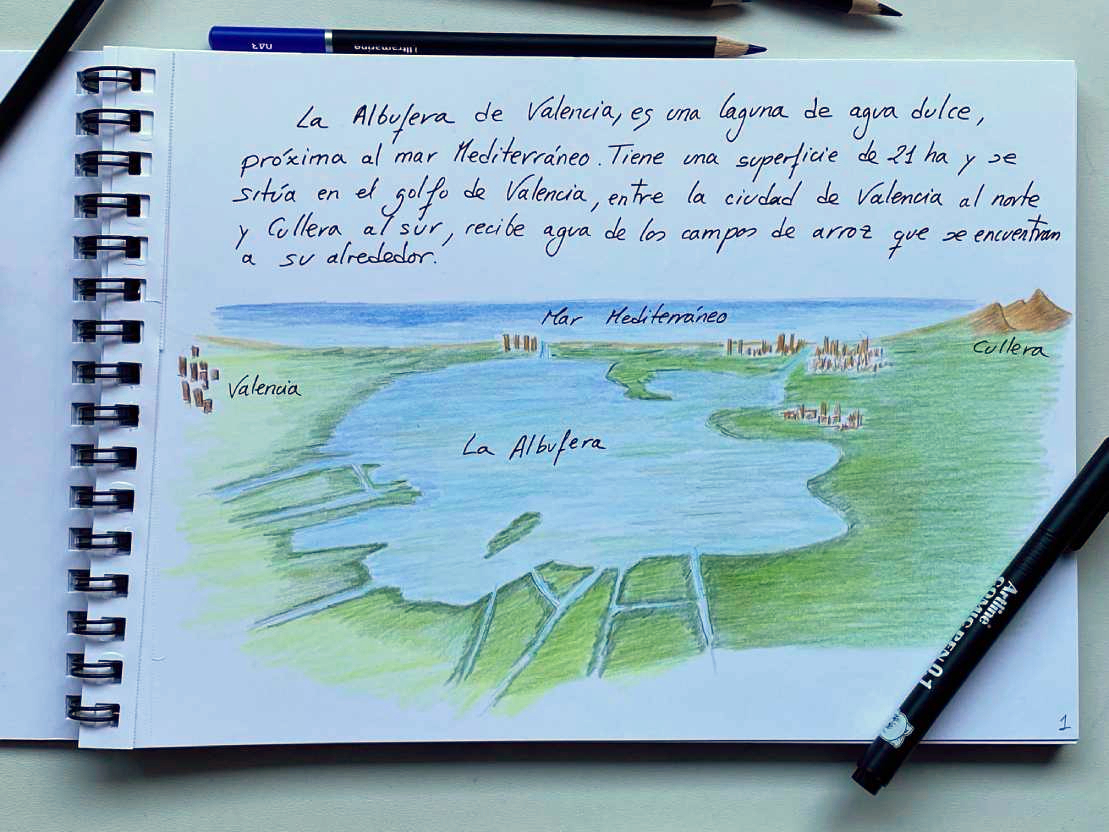 043 Ultramarine
La Albufera de Valencia, es una laguna de agua dulce,
próxima al mar Mediterráneo. Tiene una superficie de 21 ha y se
sitúa en el golfo de Valencia, entre la ciudad de Valencia al norte
y Cullera al sur, recibe agua de los campos de arroz que se encuentran
a su alrededor.
Mar Mediterráneo
Cullera
Valencia
La Albufera
Artline
COMIC PEN 0.1
1